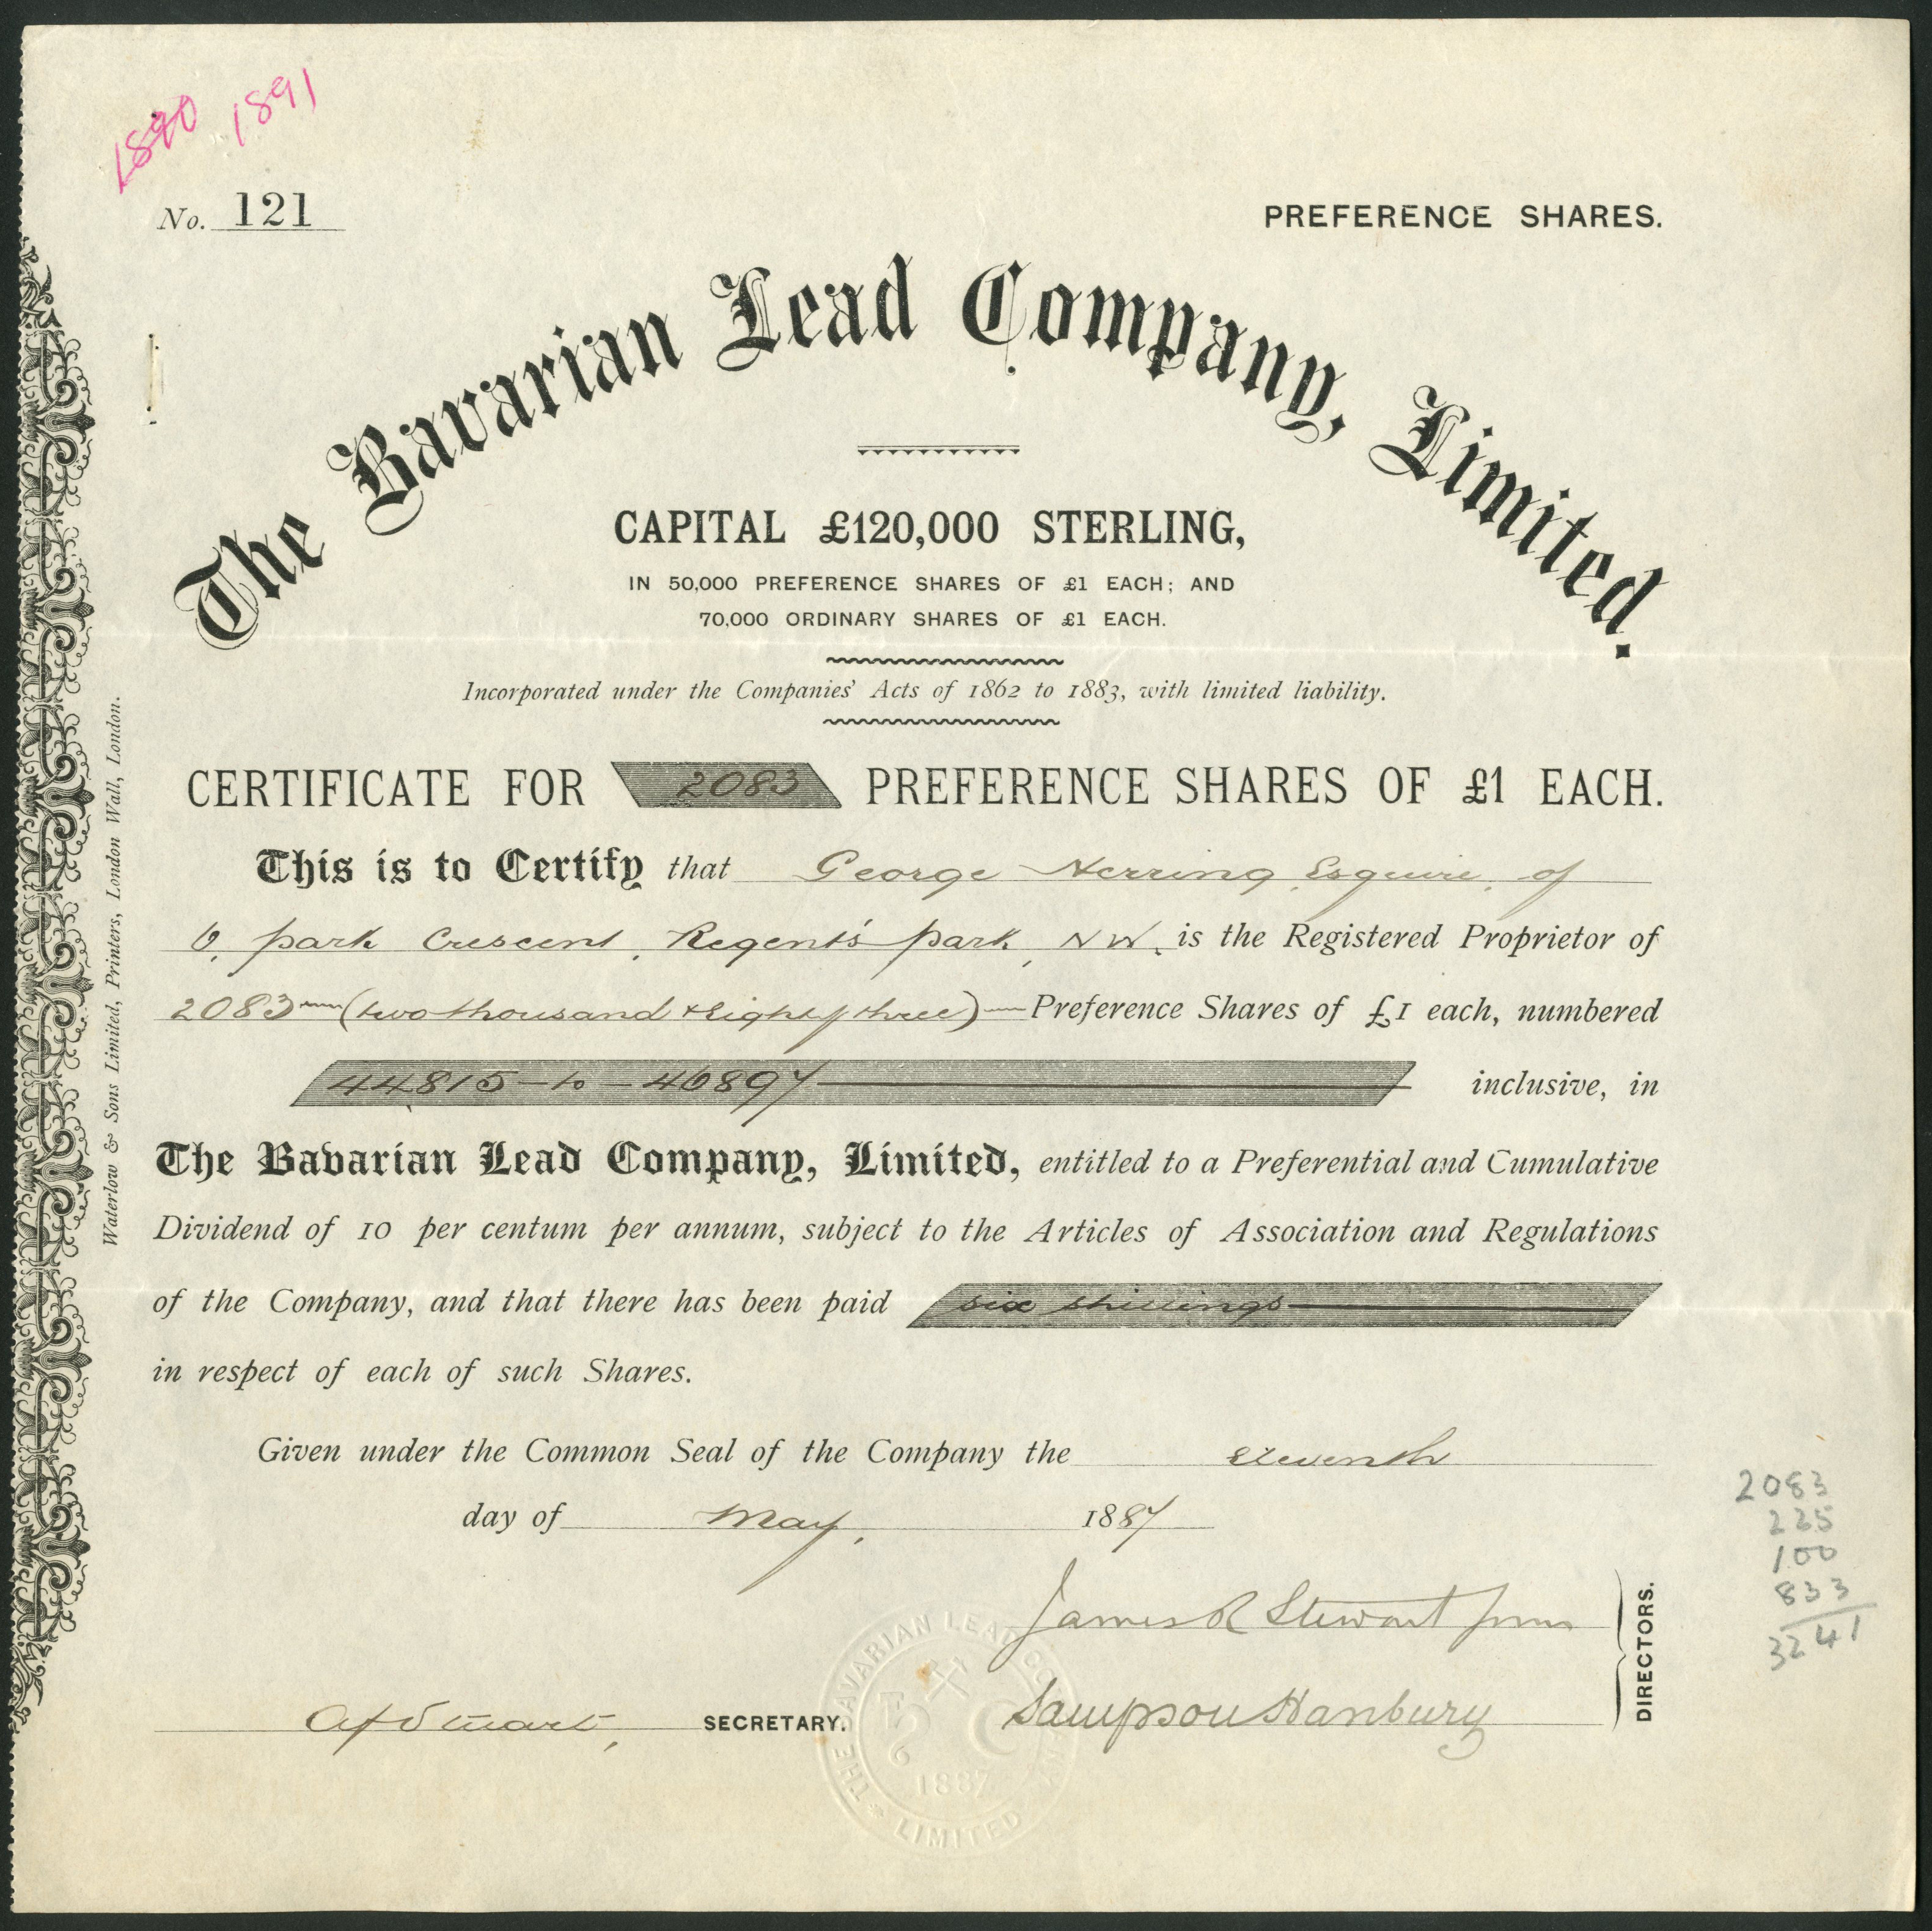 1890 1891
No. 121
PREFERENCE SHARES.
The Bavarian Lead Company, Limited.
CAPITAL £120,000 STERLING,
IN 50,000 PREFERENCE SHARES OF £1 EACH; AND
70,000 ORDINARY SHARES OF £1 EACH.
Incorporated under the Companies' Acts of 1862 to 1883, with limited liability.
CERTIFICATE FOR 2083 PREFERENCE SHARES OF £1 EACH.
This is to Certify that George Herring Esquire, of
6, park Crescent, Regent's park, NW. is the Registered Proprietor of
2083 (two thousand & Eighty three) Preference Shares of £1 each, numbered
44815 — to — 46897 inclusive, in
The Bavarian Lead Company, Limited, entitled to a Preferential and Cumulative
Dividend of 10 per centum per annum, subject to the Articles of Association and Regulations
of the Company, and that there has been paid six shillings
in respect of each of such Shares.
Given under the Common Seal of the Company the eleventh
day of May, 1887
James R Stewart junr
Sampson Hanbury
DIRECTORS.
Stuart, SECRETARY.
THE BAVARIAN LEAD COMPANY LIMITED
1887
2083
225
100
833
3241
Waterlow & Sons Limited, Printers, London Wall, London.